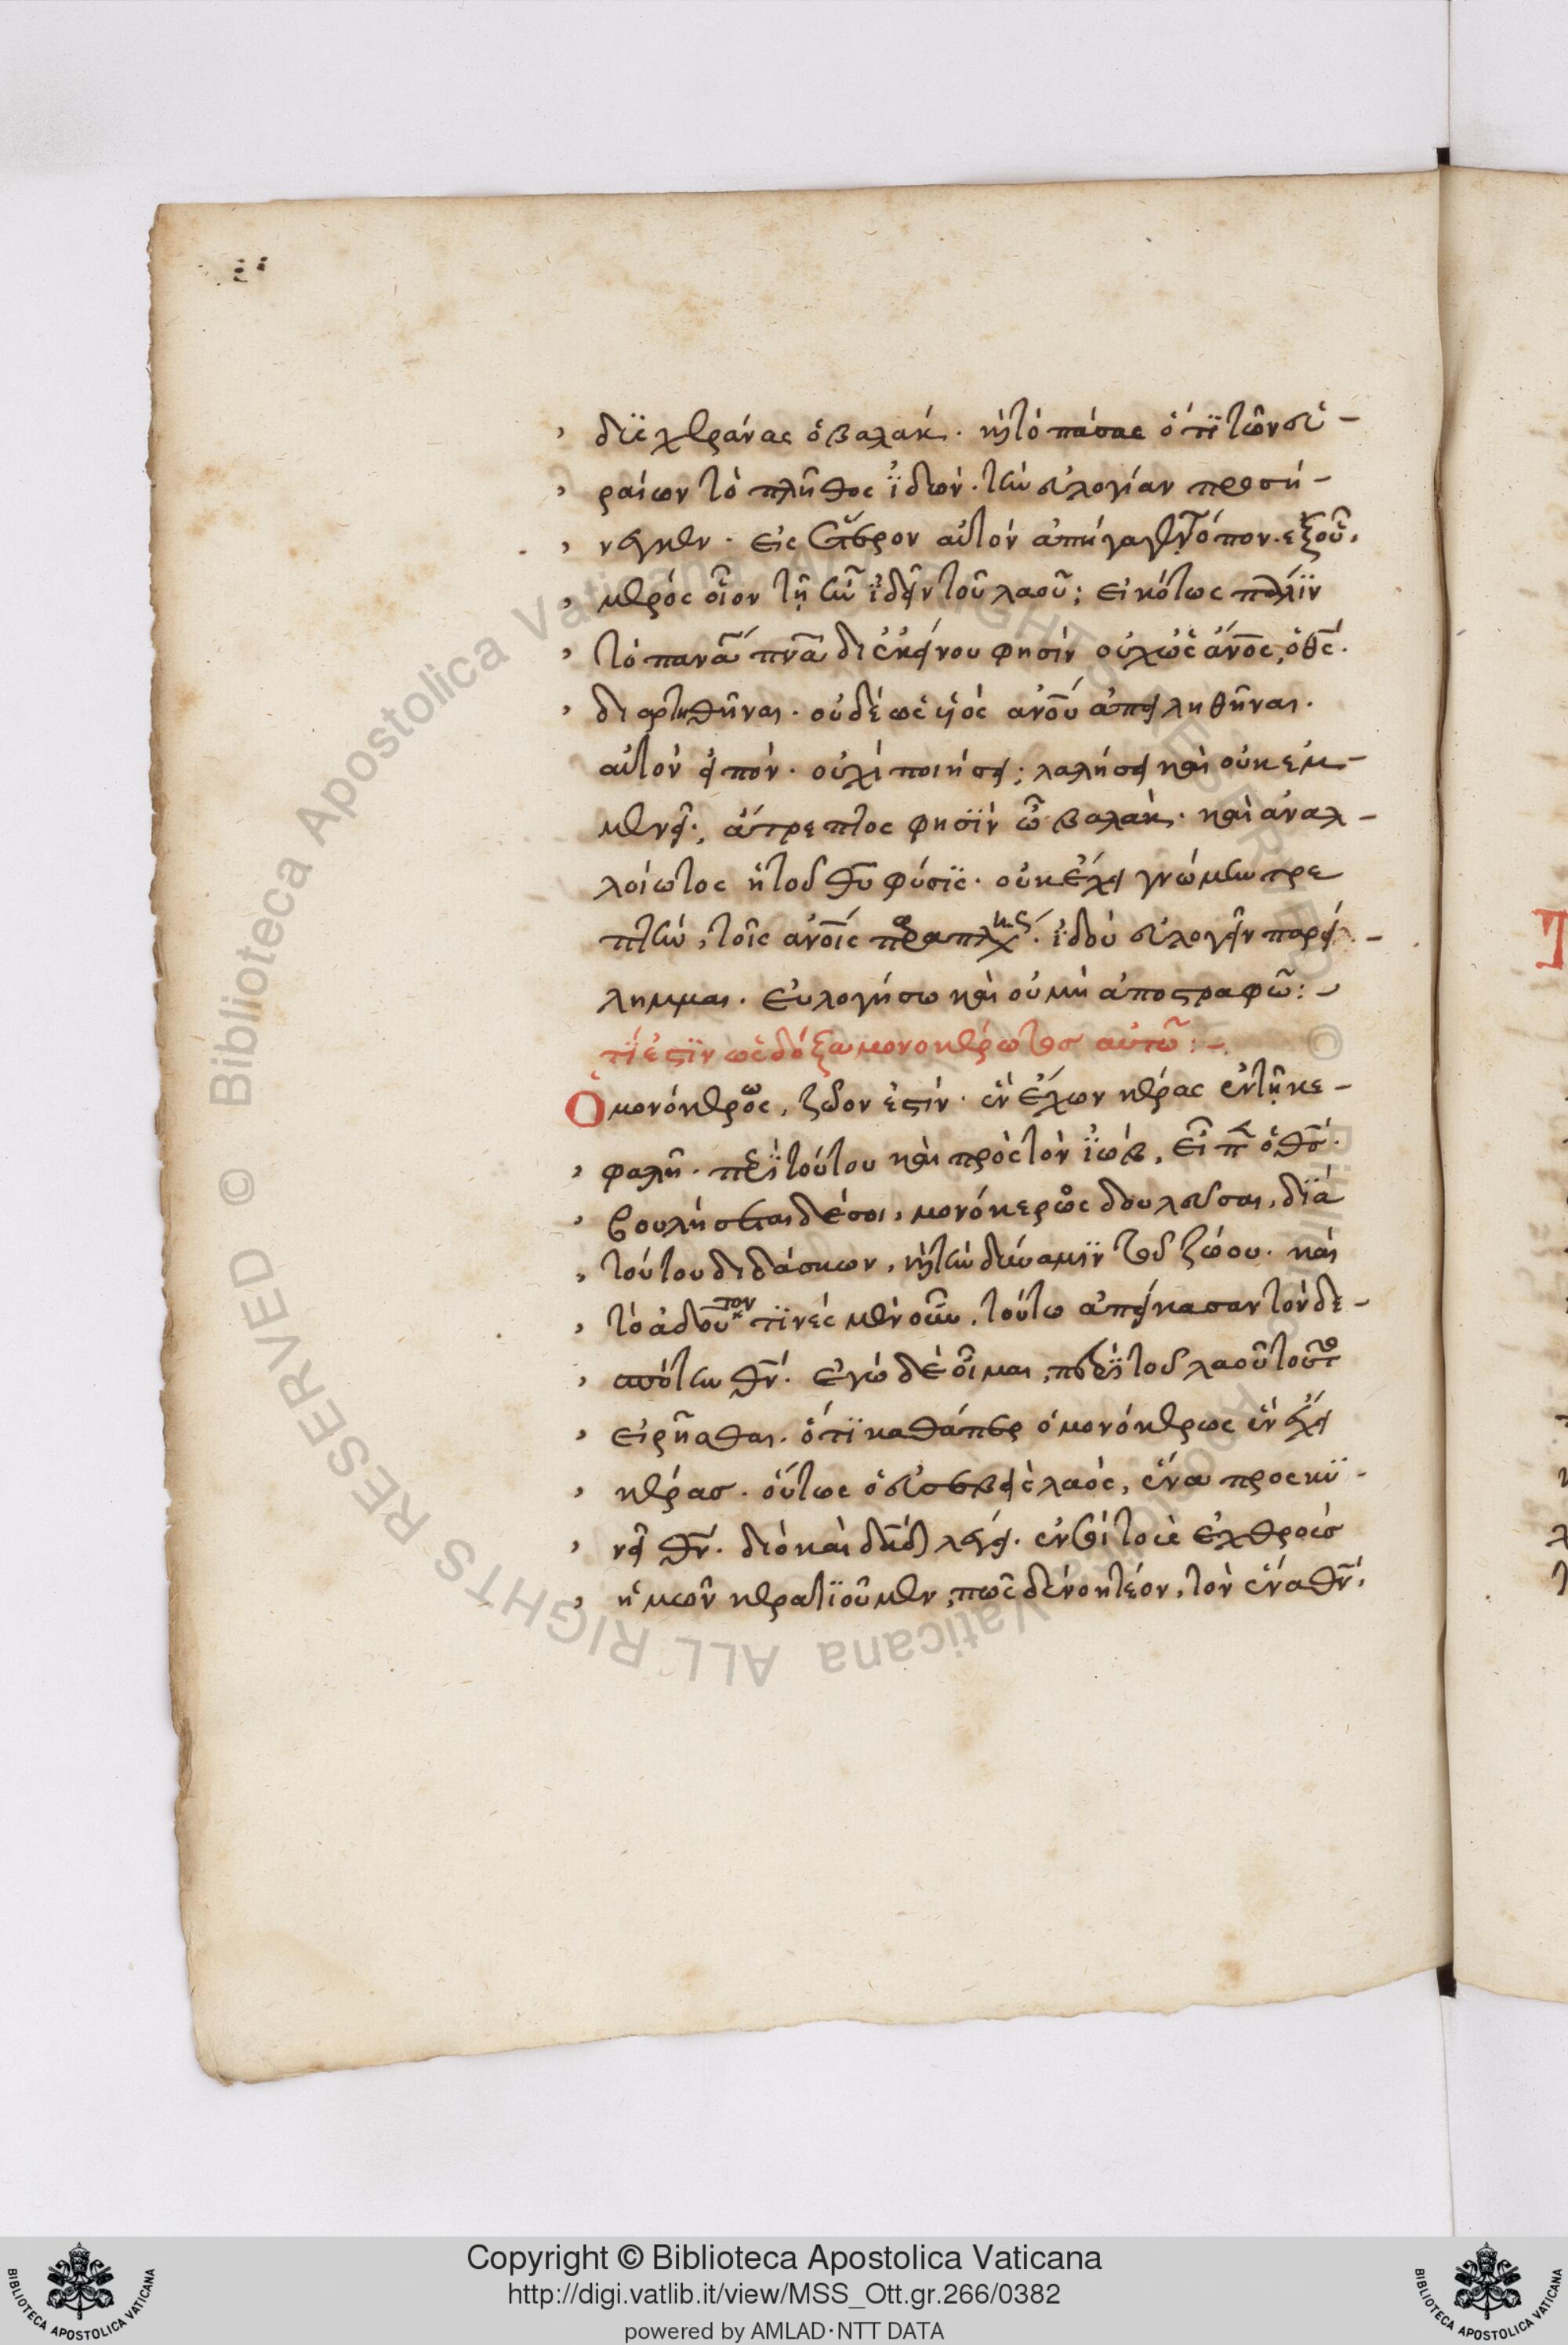 διεχθράνας ὁ βαλάκ. κ̀ τοπάσας ὅτι τῶν εὐ-
ραίων τὸ πλῆθος ἰδὼν. τὴν εὐλογίαν προσή-
νεγκεν. εἰς ἕτερον αὐτὸν ἀπήγαγεν τόπον. ἐξ οὗ,
μέρος οἷον τῇ ἦν ἰδεῖν τοῦ λαοῦ; εἰκότως πάλιν
τὸ πανά πνα δι ἐκείνου φησὶν οὐχ ὡς ἄνος, ὁ θς.
διαρτηθῆναι. οὐδὲ ὡς υἱὸς ἀνου ἀπειληθῆναι.
αὐτὸν εἰπόν. οὐχὶ ποιήσει; λαλήσει καὶ οὐκ ἐμ-
μενεῖ; ἄτρεπτος φησὶν ὦ βαλάκ. καὶ ἀναλ-
λοίωτος ἡ τοῦ θυ φύσις. οὐκ ἔχει γνώμην τρε
πτήν, τοῖς ἀνοις παραπλη. ἰδοὺ εὐλογεῖν παρεί-
λημμαι. εὐλογήσω καὶ οὐ μὴ ἀποστραφῶ:-
τί ἐστὶν ὡς δόξα μονοκέρωτος αὐτῶ:-
Ὁ μονόκερως, ζῶον ἐστίν. ἓν ἔχων κέρας ἐν τῇ κε-
φαλῇ. περὶ τούτου καὶ πρὸς τὸν ἰώβ, εἶπ ὁ θς.
βουλήσεται δέ σοι, μονόκερως δουλεῦσαι, διὰ
τούτου διδάσκων, κ̀ τὴν δύναμιν τοῦ ζώου. καὶ
τὸ ἀδού τον τινὲς μὲν οὖν, τούτω ἀπείκασαν τὸν δε-
σπότην θν. ἐγὼ δὲ οἶμαι, περὶ τοῦ λαοῦ τοῦτο
εἰρῆσθαι. ὅτι καθάπερ ὁ μονόκερως ἓν ἔχει
κέρας. οὕτως ὁ εὐσεβεὶς λαός, ἕνα προσκυ-
νεῖ θν. διὸ καὶ δαδ λέγει. ἐν σοὶ τοὺς ἐχθροὺς
ἡμῶν κερατιοῦμεν, πῶς δὲ νοητέον, τὸν ἕνα θν,
Copyright © Biblioteca Apostolica Vaticana
http://digi.vatlib.it/view/MSS_Ott.gr.266/0382
powered by AMLAD·NTT DATA